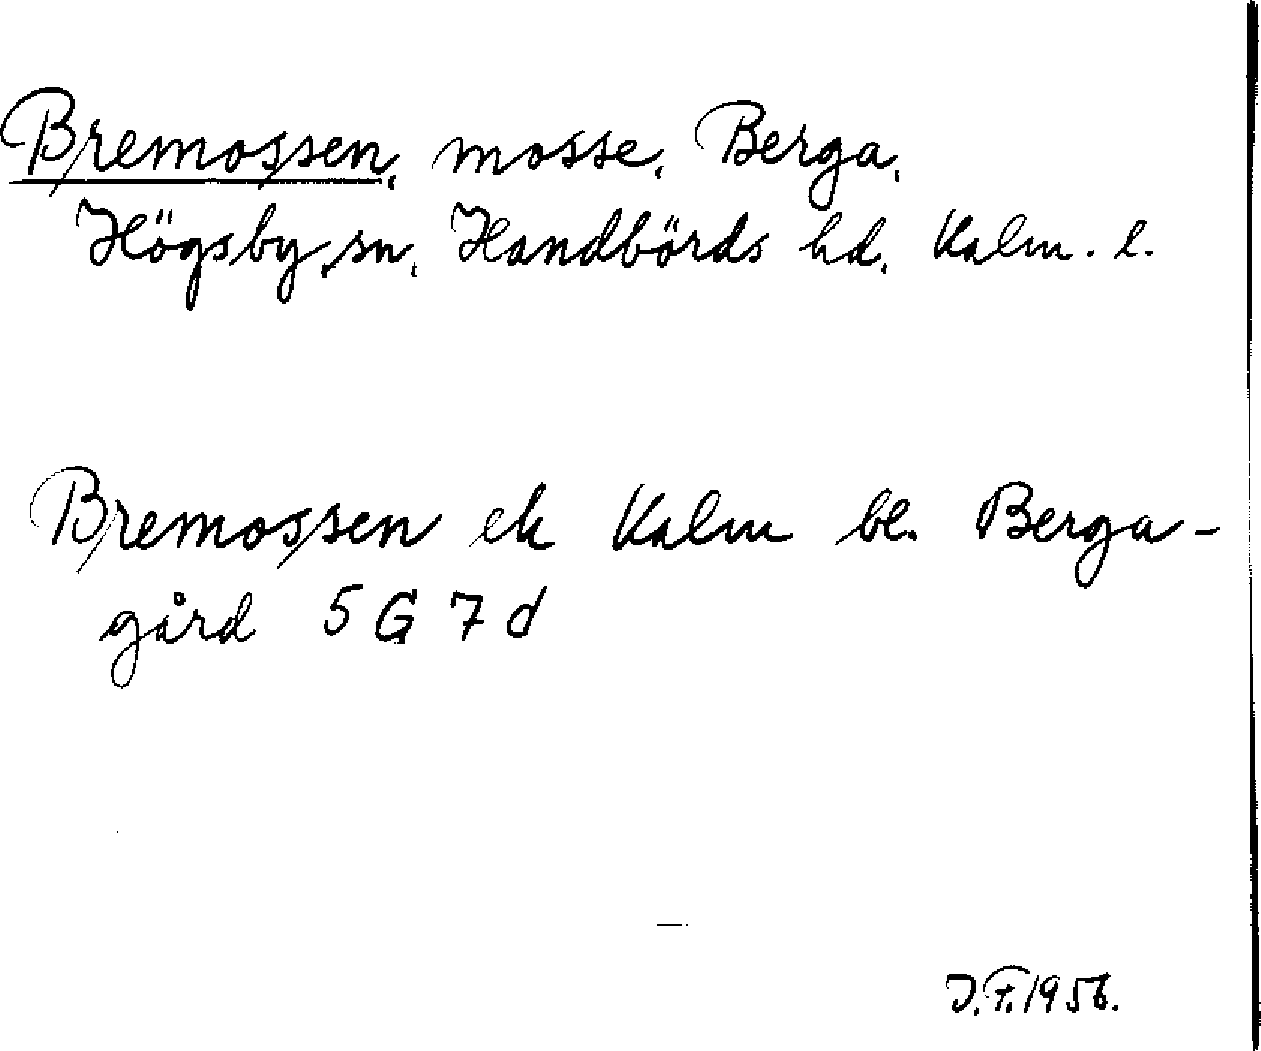 Bremossen, mosse, Berga,
Högsby sn, Handbörds hd, Kalm. l.
Bremossen ek Kalm bl. Berga-
gård 5 G 7 d
J.F. 1956.